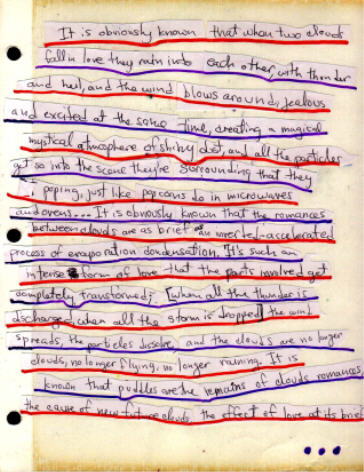 It is obviously known that when two clouds
fall in love they rain into each other, with thunder
and hail, and the wind blows around, jealous
and excited at the same time, creating a magical
mystical atmosphere of shiny dust, and all the particles
get so into the scene they're surrounding that they
poping, just like popcorns do in microwaves
and ovens... It is obviously known that the romances
between clouds are as brief as an inverted-accelerated
process of evaporation condensation. It's such an
intense form of love that the parts involved get
completely transformed; [when all the thunder is
discharged, when all the storm is dropped] the wind
spreads, the particles dissolve, and the clouds are no longer
clouds, no longer flying, no longer raining. It is
known that puddles are the remains of clouds romances,
the cause of new future clouds, the effect of love at its brief
...